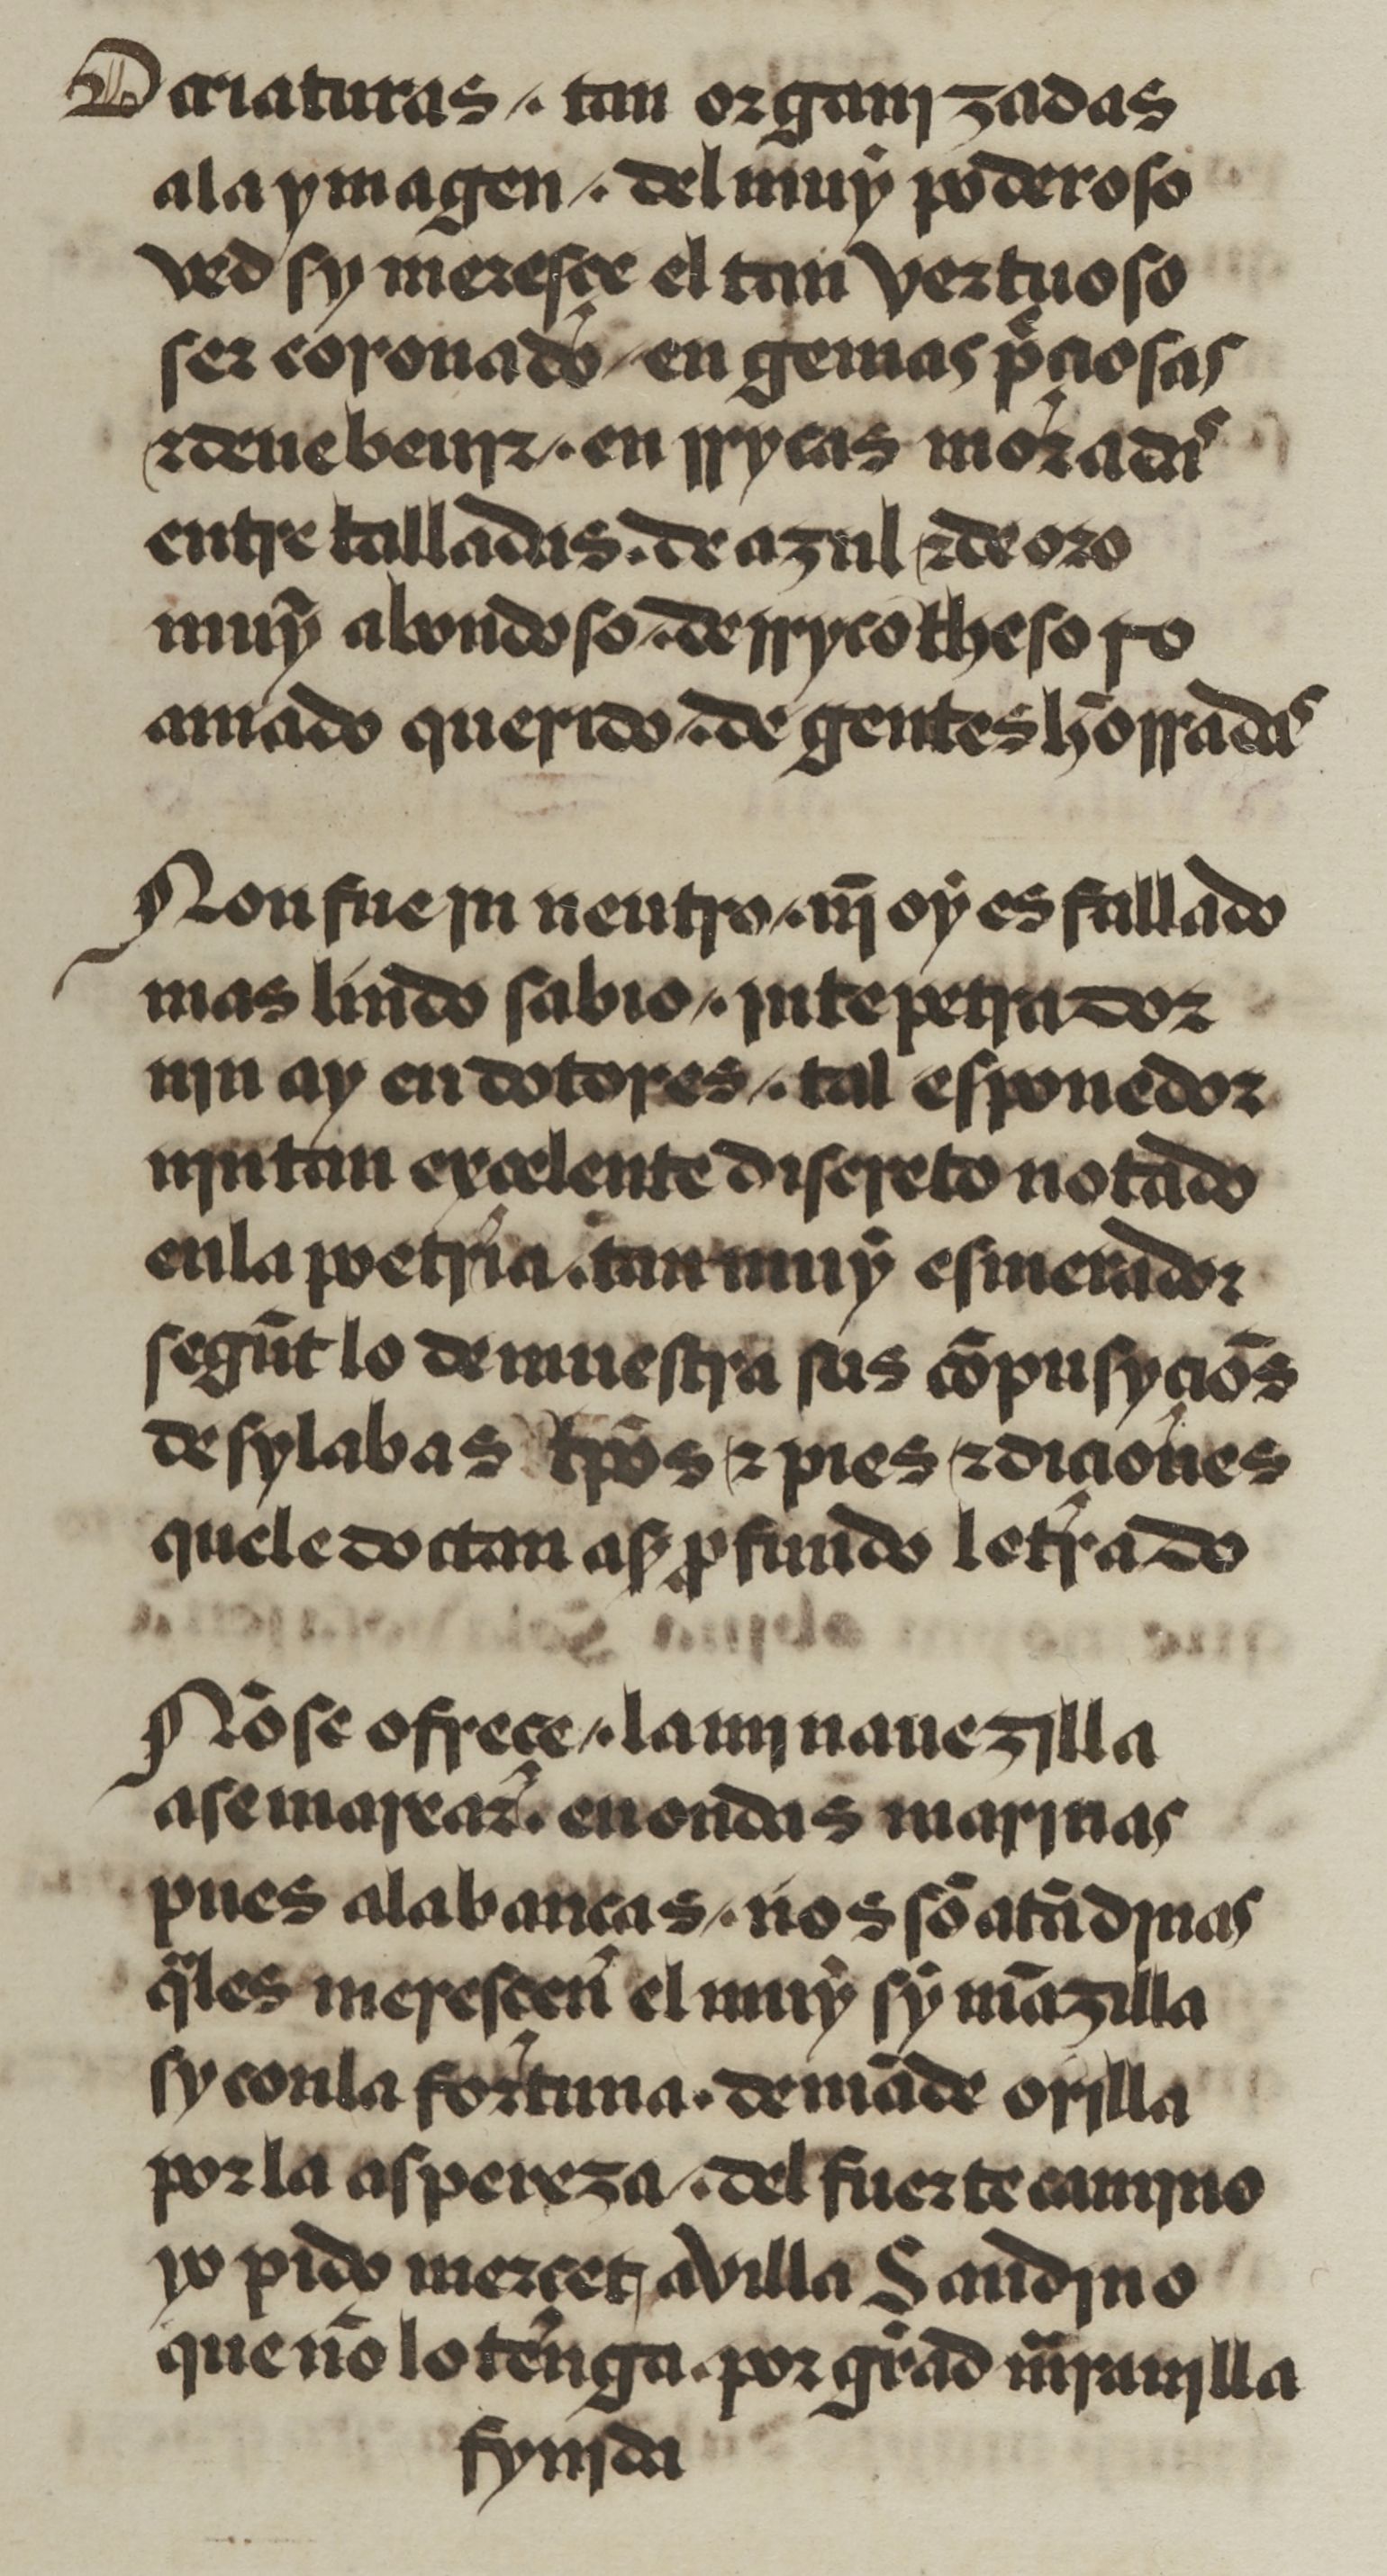 D criaturas /. tan organjzadas
ala ymagen /. del muy poderoso
ved sy meresçe el tan vertuoso
ser coronado / en gemas p̃ciosas
⁊ deue beujr /. en rrycas moradas
entre talladas . de azul ⁊ de oro
muy abondoso /. de rryco thesoro
amado querido /. de gentes hõrradas
Non fue jn neutro /. nj̃ oy es fallado
mas lindo sabio /. jntepetrador
njn ay en dotores /. tal esponedor
njn tan exçelente discreto notado
en la poetria . tan muy esmerador
segũt lo demuestra sus cõpusyciõs
de sylabas tp̃os ⁊ pies ⁊ diciones
que le doctan asy ꝓfundo letrado
Nõ se ofrece /. la mj nauezilla
a se marear . en ondas marjnas
pues alabancas /. nos sõ atãdjnas
q̃les meresçen el muy sy mãzilla
sy con la fortuna . demãde orilla
por la aspereza /. del fuerte camjno
yo pido merçet a villa Sandjno
que nõ lo tenga . por grãd mr̃aujlla
fynjda